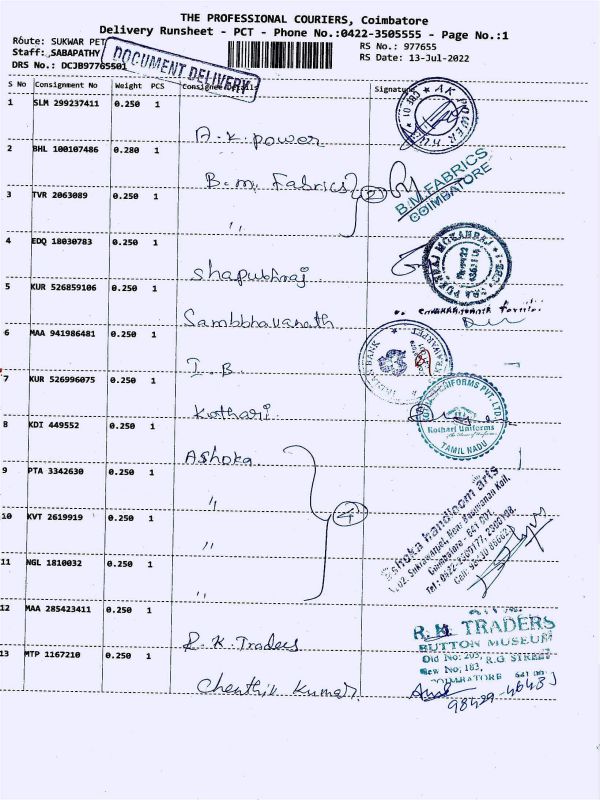 THE PROFESSIONAL COURIERS, Coimbatore
Delivery Runsheet - PCT - Phone No.:0422-3505555 - Page No.:1
Route: SUKWAR PET
RS No.: 977655
Staff: SABAPATHY
RS Date: 13-Jul-2022
DRS No.: DCJB97765501
DOCUMENT DELIVERY
S No Consignment No Weight PCS Consignee Details Signature
1 SLM 299237411 0.250 1
A.K. power
AK POWER
2 BHL 100107486 0.280 1
B.M. Fabrics 2
B.M.FABRICS
COIMBATORE
3 TVR 2063089 0.250 1
"
4 EDQ 18030783 0.250 1
5 KUR 526859106 0.250 1
6 MAA 941986481 0.250 1
I. B
INDIAN BANK
7 KUR 526996075 0.250 1
Kothari
UNIFORMS PVT. LTD.
Kothari Uniforms
TAMIL NADU
8 KDI 449552 0.250 1
Ashoka
9 PTA 3342630 0.250 1
"
4
10 KVT 2619919 0.250 1
"
Ashoka handloom arts
Coimbatore - 641 001.
11 NGL 1810032 0.250 1
"
12 MAA 285423411 0.250 1
R.K. Traders
R. K. TRADERS
BUTTON MUSEUM
Old No: 205, R.G STREET
New No; 183,
COIMBATORE
13 MTP 1167210 0.250 1
Chenthil Kumar